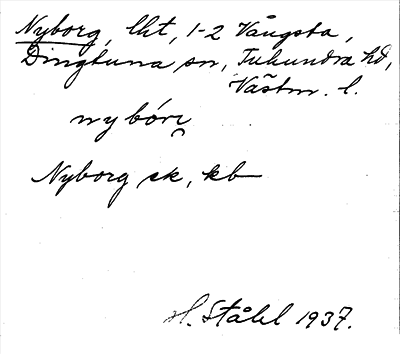 Nyborg, lht, 1-2 Vångsta,
Dingtuna sn, Tuhundra hd,
Västm. l.
nybórj
Nyborg ek, kb
H. Ståhl 1937.